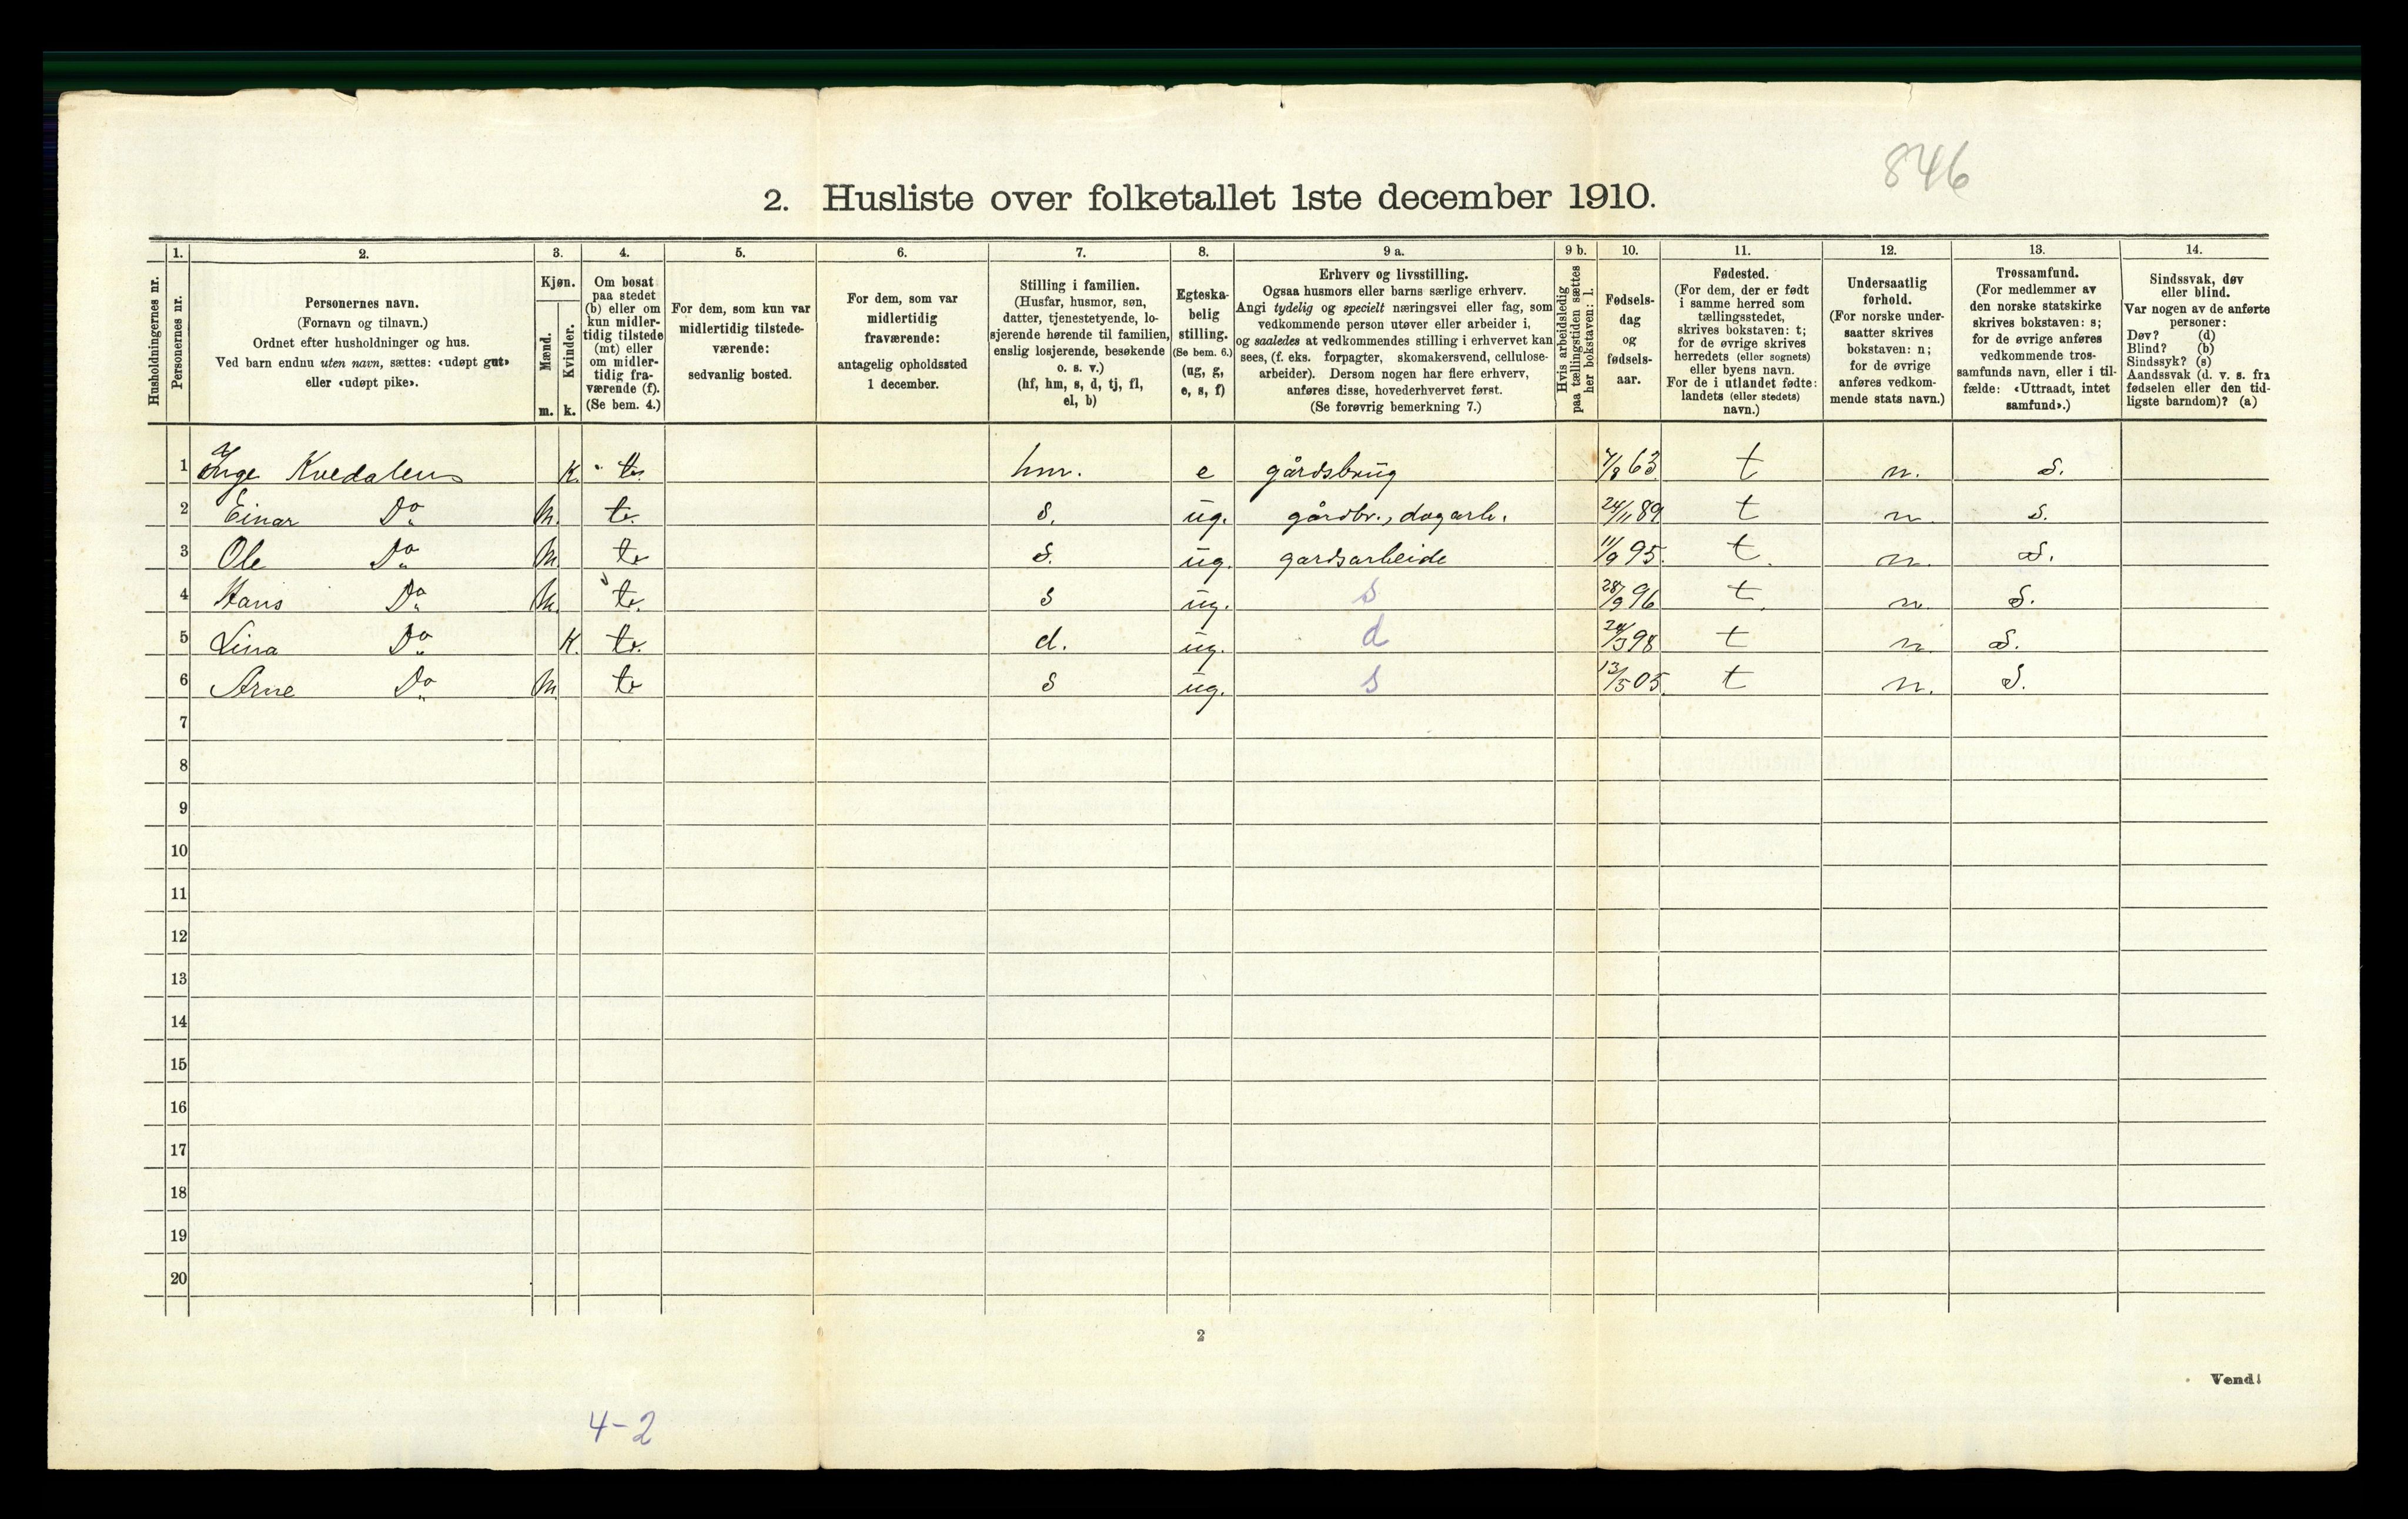 846
2. Husliste over folketallet 1ste december 1910.
Husholdningernes nr.
1.
Personernes nr.
2.
Personernes navn.
(Fornavn og tilnavn.)
Ordnet efter husholdninger og hus.
Ved barn endnu uten navn, sættes: «udøpt gut»
eller «udøpt pike».
3.
Kjøn.
Mænd.
m.
Kvinder.
k.
4.
Om bosat
paa stedet
(b) eller om
kun midler-
tidig tilstede
(mt) eller
om midler-
tidig fra-
værende (f).
(Se bem. 4.)
5.
For dem, som kun var
midlertidig tilstede-
værende:
sedvanlig bosted.
6.
For dem, som var
midlertidig
fraværende:
antagelig opholdssted
1 december.
7.
Stilling i familien.
(Husfar, husmor, søn,
datter, tjenestetyende, lo-
sjerende hørende til familien,
enslig losjerende, besøkende
o. s. v.)
(hf, hm, s, d, tj, fl,
el, b)
8.
Egteska-
belig
stilling.
(Se bem. 6.)
(ug, g,
e, s, f)
9 a.
Erhverv og livsstilling.
Ogsaa husmors eller barns særlige erhverv.
Angi tydelig og specielt næringsvei eller fag, som
vedkommende person utøver eller arbeider i,
og saaledes at vedkommendes stilling i erhvervet kan
sees, (f. eks. forpagter, skomakersvend, cellulose-
arbeider). Dersom nogen har flere erhverv,
anføres disse, hovederhvervet først.
(Se forøvrig bemerkning 7.)
9 b.
Hvis arbeidsledig
paa tællingstiden sættes
her bokstaven: l.
10.
Fødsels-
dag
og
fødsels-
aar.
11.
Fødested.
(For dem, der er født
i samme herred som
tællingsstedet,
skrives bokstaven: t;
for de øvrige skrives
herredets (eller sognets)
eller byens navn.
For de i utlandet fødte:
landets (eller stedets)
navn.)
12.
Undersaatlig
forhold.
(For norske under-
saatter skrives
bokstaven: n;
for de øvrige
anføres vedkom-
mende stats navn.)
13.
Trossamfund.
(For medlemmer av
den norske statskirke
skrives bokstaven: s;
for de øvrige anføres
vedkommende tros-
samfunds navn, eller i til-
fælde: «Uttraadt, intet
samfund».)
14.
Sindssvak, døv
eller blind.
Var nogen av de anførte
personer:
Døv? (d)
Blind? (b)
Sindssyk? (s)
Aandssvak (d. v. s. fra
fødselen eller den tid-
ligste barndom)? (a)
1 Inge Kvedalen K. hm. e gårdsbrug 7/8 63 t n. s.
2 Einar Do M. s. ug. gårdbr., dagarb. 24/11 89 t n s.
3 Ole Do M. s. ug. gardsarbeide 11/9 95. t n. s.
4 Hans Do M. s ug. s 28/9 96 t n. s.
5 Lina Do K. d. ug. d 98 t n. s.
6 Arne Do M s ug. s 13/5 05. t n. s.
7
8
9
10
11
12
13
14
15
16
17
18
19
20
2
Vend!
4-2